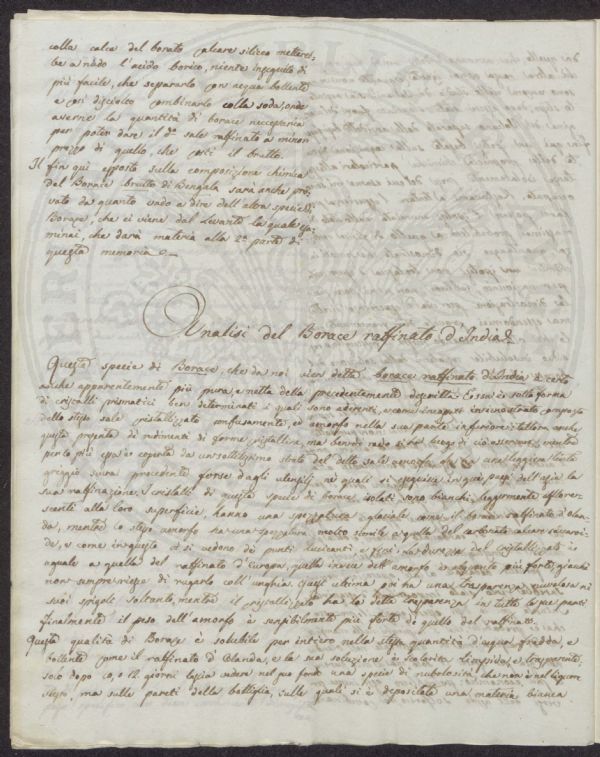 colla calce del borato calcare siliceo mettereb-
be a nudo l'acido borico, niente in seguito di
più facile, che separarlo con acqua bollente
e così disciolto combinarlo colla soda, onde
averne la quantità di borace necessaria
per poter dare il do sale raffinato a minor
prezzo di quello, che costi il brutto.
Il fin qui esposto sulla composizione chimica
del Borace brutto di Bengala sarà anche pro-
vato da quanto vado a dire dell'altra specie di
Borace, che ci viene dal Levante la quale esa-
minai, che darà materia alla 2a parte di
questa memoria
Analisi del Borace raffinato d'India
Questa specie di Borace, che da noi vien detta borace raffinato d'India è certo
anche apparentemente più pura, e netta della precedentemente descritta. Essa è sotto forma
di cristalli prismatici ben determinati i quali sono aderenti, e come in uno strato composto
dello stesso sale cristallizzato confusamente, ed amorfo nella sua parte inferiore: tallora anche
questa presenta dei rudimenti di forme cristalline, ma ben di rado si ha luogo di ciò osservare, mentre
per lo più essa è coperta da un sottilissimo strato del detto sale amorfo, che ha una leggiera tinta
griggio scura procedente forse dagli utensili, ne' quali si eseguisce in que' paesi dell'Asia la
sua raffinazione. I cristalli di questa specie di borace, isolati sono bianchi, leggermente efflore-
scenti alla loro superficie, hanno una spezzatura glaciale come il borace raffinato d'Olan-
da, mentre lo stesso amorfo ha una spezzatura molto simile a quella del carbonato calcare saccaroi-
de, e come in questo vi si vedono dei punti lucicanti, e fini. La durezza del cristallizzato è
uguale a quella del raffinato d'Europa, quella invece dell'amorfo è alquanto più forte, giacchè
non sempre riesce di rigarlo coll'unghia. Quest'ultima poi ha una trasparenza nuvolosa ni
suoi spigoli soltanto, mentre il cristallizzato ha la detta trasparenza in tutte le sue parti
finalmente il peso dell'amorfo è sensibilmente più forte di quello del raffinato.
Questa qualità di Borace è solubile per intiero nella stessa quantità d'acqua fredda, e
bollente come il raffinato d'Olanda, e la sua soluzione è scolorita limpida, e trasparente,
solo dopo 10, o 12 giorni lascia vedere nel suo fondo una specie di nubolosità che non è nel liquore
stesso, ma sulle pareti della bottiglia, sulle quali si è depositata una materia bianca